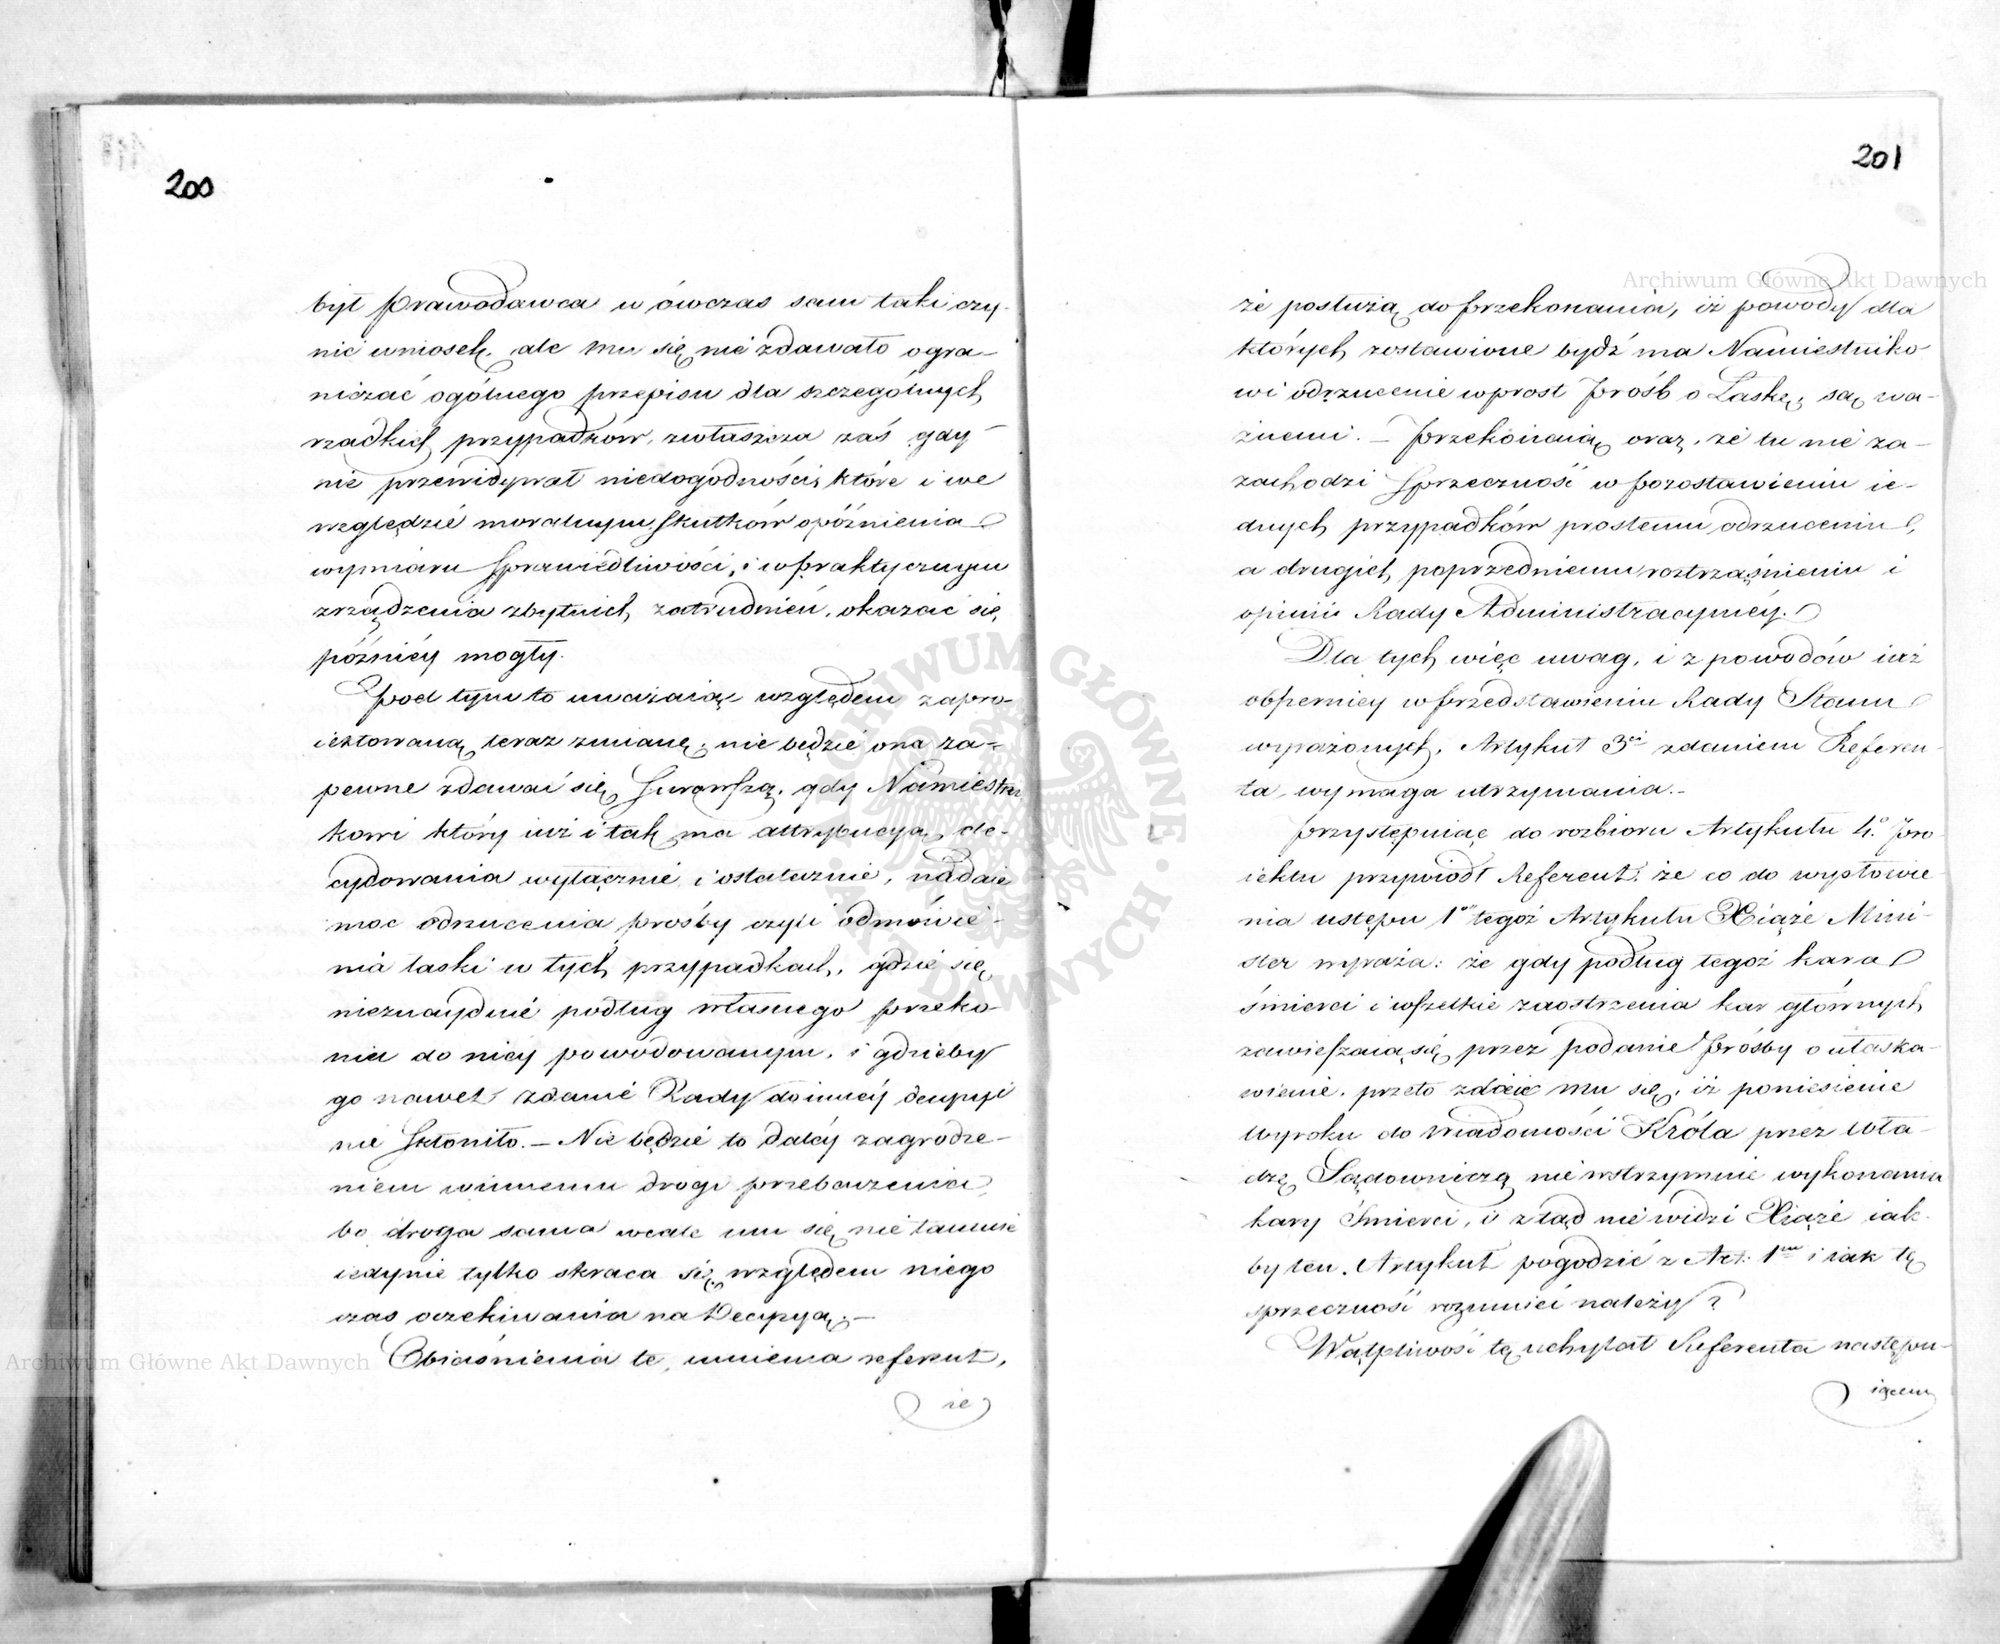 200
był Prawodawca w ówczas sam taki czy-
nić wniosek, ale mu się nie zdawało ogra-
niczać ogólnego przepisu dla szczególnych
rzadkich przypadków, zwłaszcza zaś gdy
nie przewidywał niedogodności, które i we
względzie moralnym skutków opóźnienia
wymiaru Sprawiedliwości, i w praktycznym
zrządzenia zbytnich zatrudnień, okazać się
późniéy mogły.
Pod tym to uważaiąc względem zapro-
iektowaną teraz zmianę, nie będzie ona za-
pewne zdawać się Surowszą, gdy Namiestni-
kowi który iuż i tak ma attrybucyą de-
cydowania wyłącznie i ostatecznie, nadaie
moc odrzucenia prośby czyli odmówie-
nia łaski w tych przypadkach, gdzie się
nieznayduie podług własnego przeko-
nia do niey powodowanym, i gdzieby
go nawet zdanie Rady do innéy decyzyi
nie skłoniło. – Nie będzie to daléy zagrodze-
niem winnemu drogi przebaczenia,
bo droga sama wcale mu się nie tamuie
iedynie tylko skraca się względem niego
czas oczekiwania na Decyzyą. –
Obiaśnienia te, mniema referent,
że
201
że posłużą do przekonania, iż powody dla
których zostawione bydź ma Namiestniko
wi odrzucenie wprost Prośb o Łaskę, są wa-
żnemi. – Przekonaią oraz, że tu nie za-
zachodzi Sprzeczność w pozostawieniu ie-
dnych przypadków prostemu odrzuceniu,
a drugich poprzedniemu roztrząśnieniu i
opinii Rady Administracyinéy.
Dla tych więc uwag, i z powodów iuż
obszerniey w przedstawieniu Rady Stanu
wyrażonych, Artykuł 3ci zdaniem Referen-
ta wymaga utrzymania. –
Przystępuiąc do rozbioru Artykułu 4o Pro
iektu przywiódł Referent, że co do wysłowie
nia ustępu 1go tegoż Artykułu Xiąże Mini-
ster wyraża: że gdy podług tegoż kara
śmierci i wszelkie zaostrzenia kar głównych
zawieszaią się przez podanie Prośby o ułaska-
wienie, przeto zdaie mu się, iż poniesienie
Wyroku do wiadomości Króla przez Wła-
dzę Sądowniczą nie wstrzymuie wykonania
kary Śmierci, i ztąd nie widzi Xiąże iak-
by ten Artykuł pogodzić z Art. 1ym i iak tę
sprzeczność rozumieć należy?
Wątpliwość tę uchylał Referenta następu-
iącem
Archiwum Główne Akt Dawnych
Archiwum Główne Akt Dawnych
ARCHIWUM GŁÓWNE AKT DAWNYCH